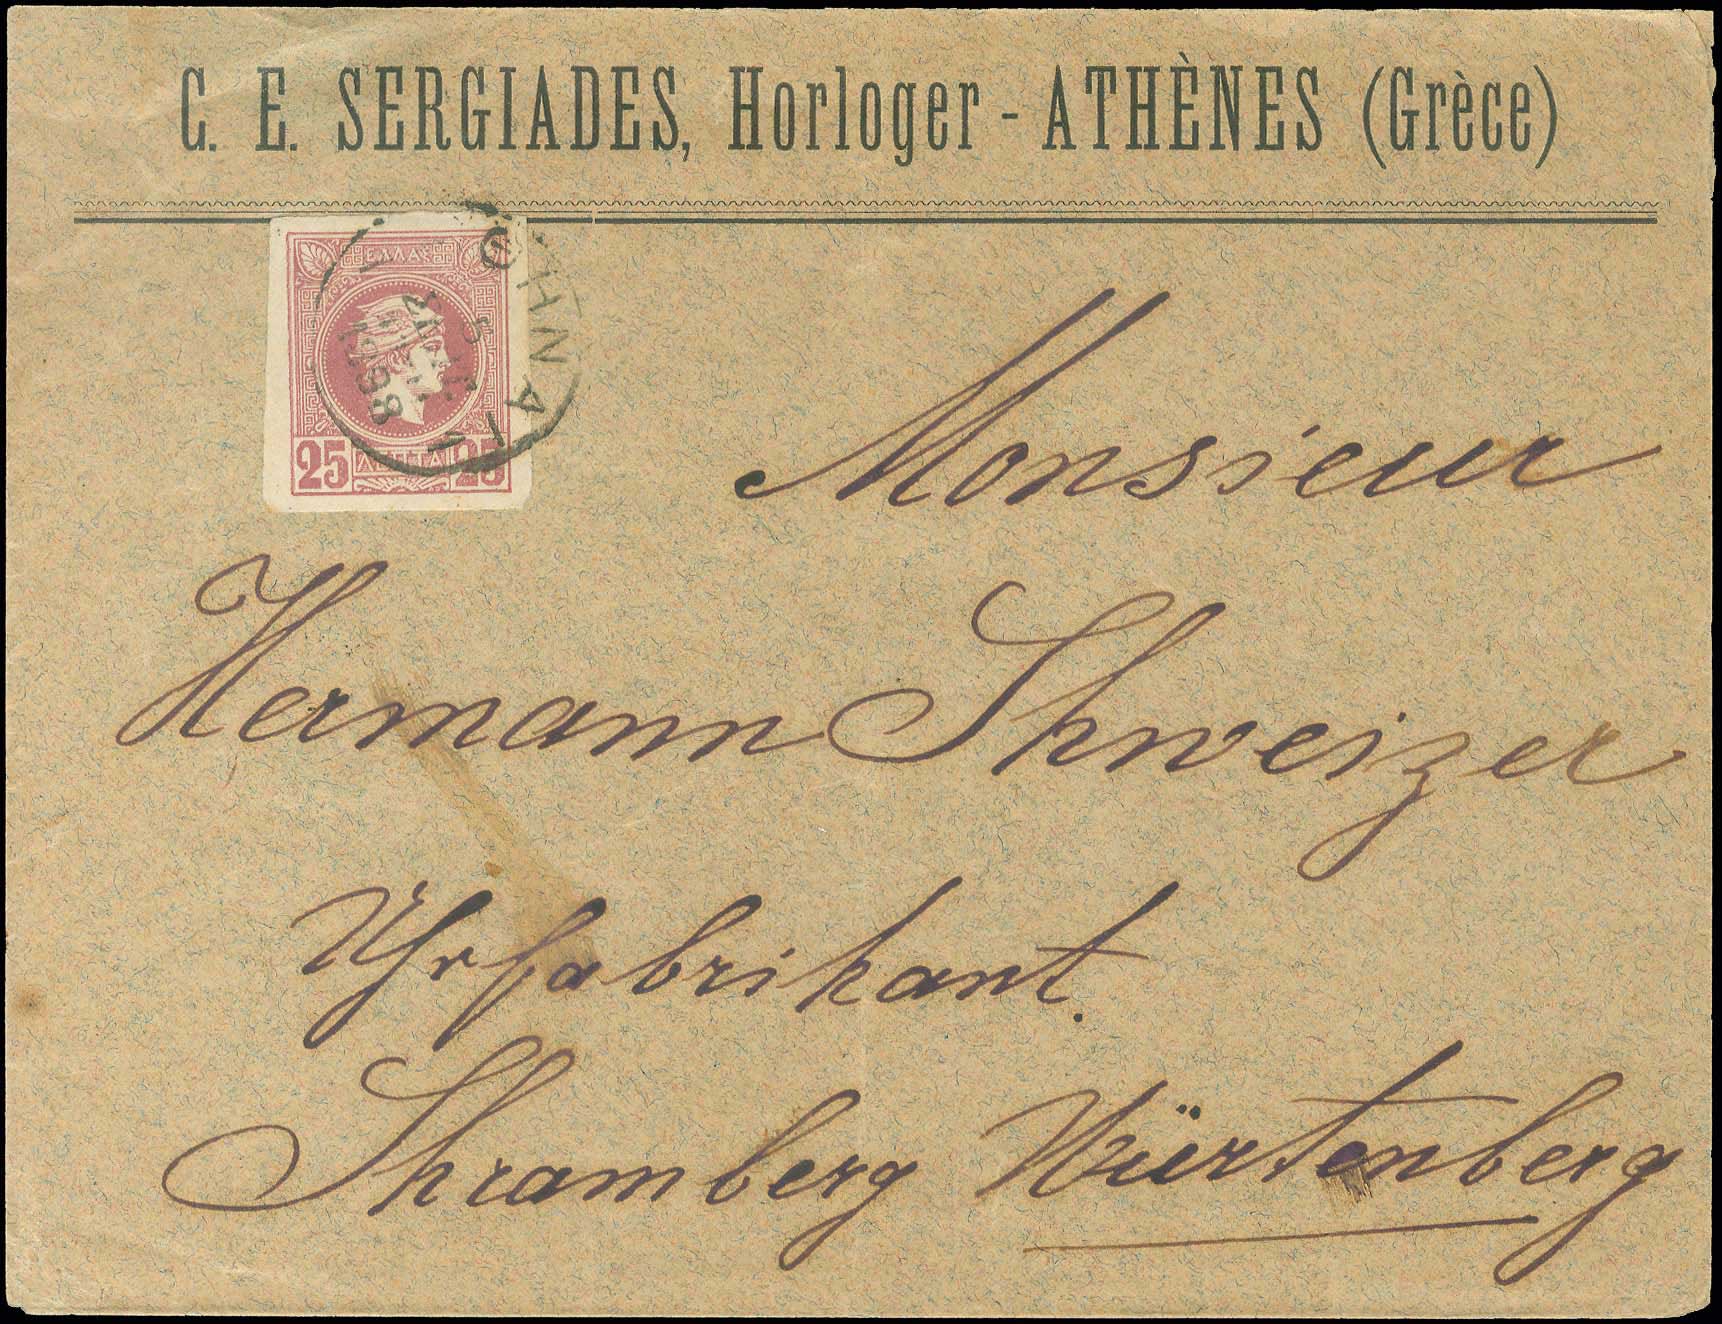 C. E. SERGIADES, Horloger - ATHÈNES (Grèce)
ΕΛΛΑΣ
25 ΛΕΠΤΑ 25
ΑΘΗΝΑΙ
1898
Monsieur
Hermann Shweizer
Uhrfabrikant.
Shramberg Würtenberg